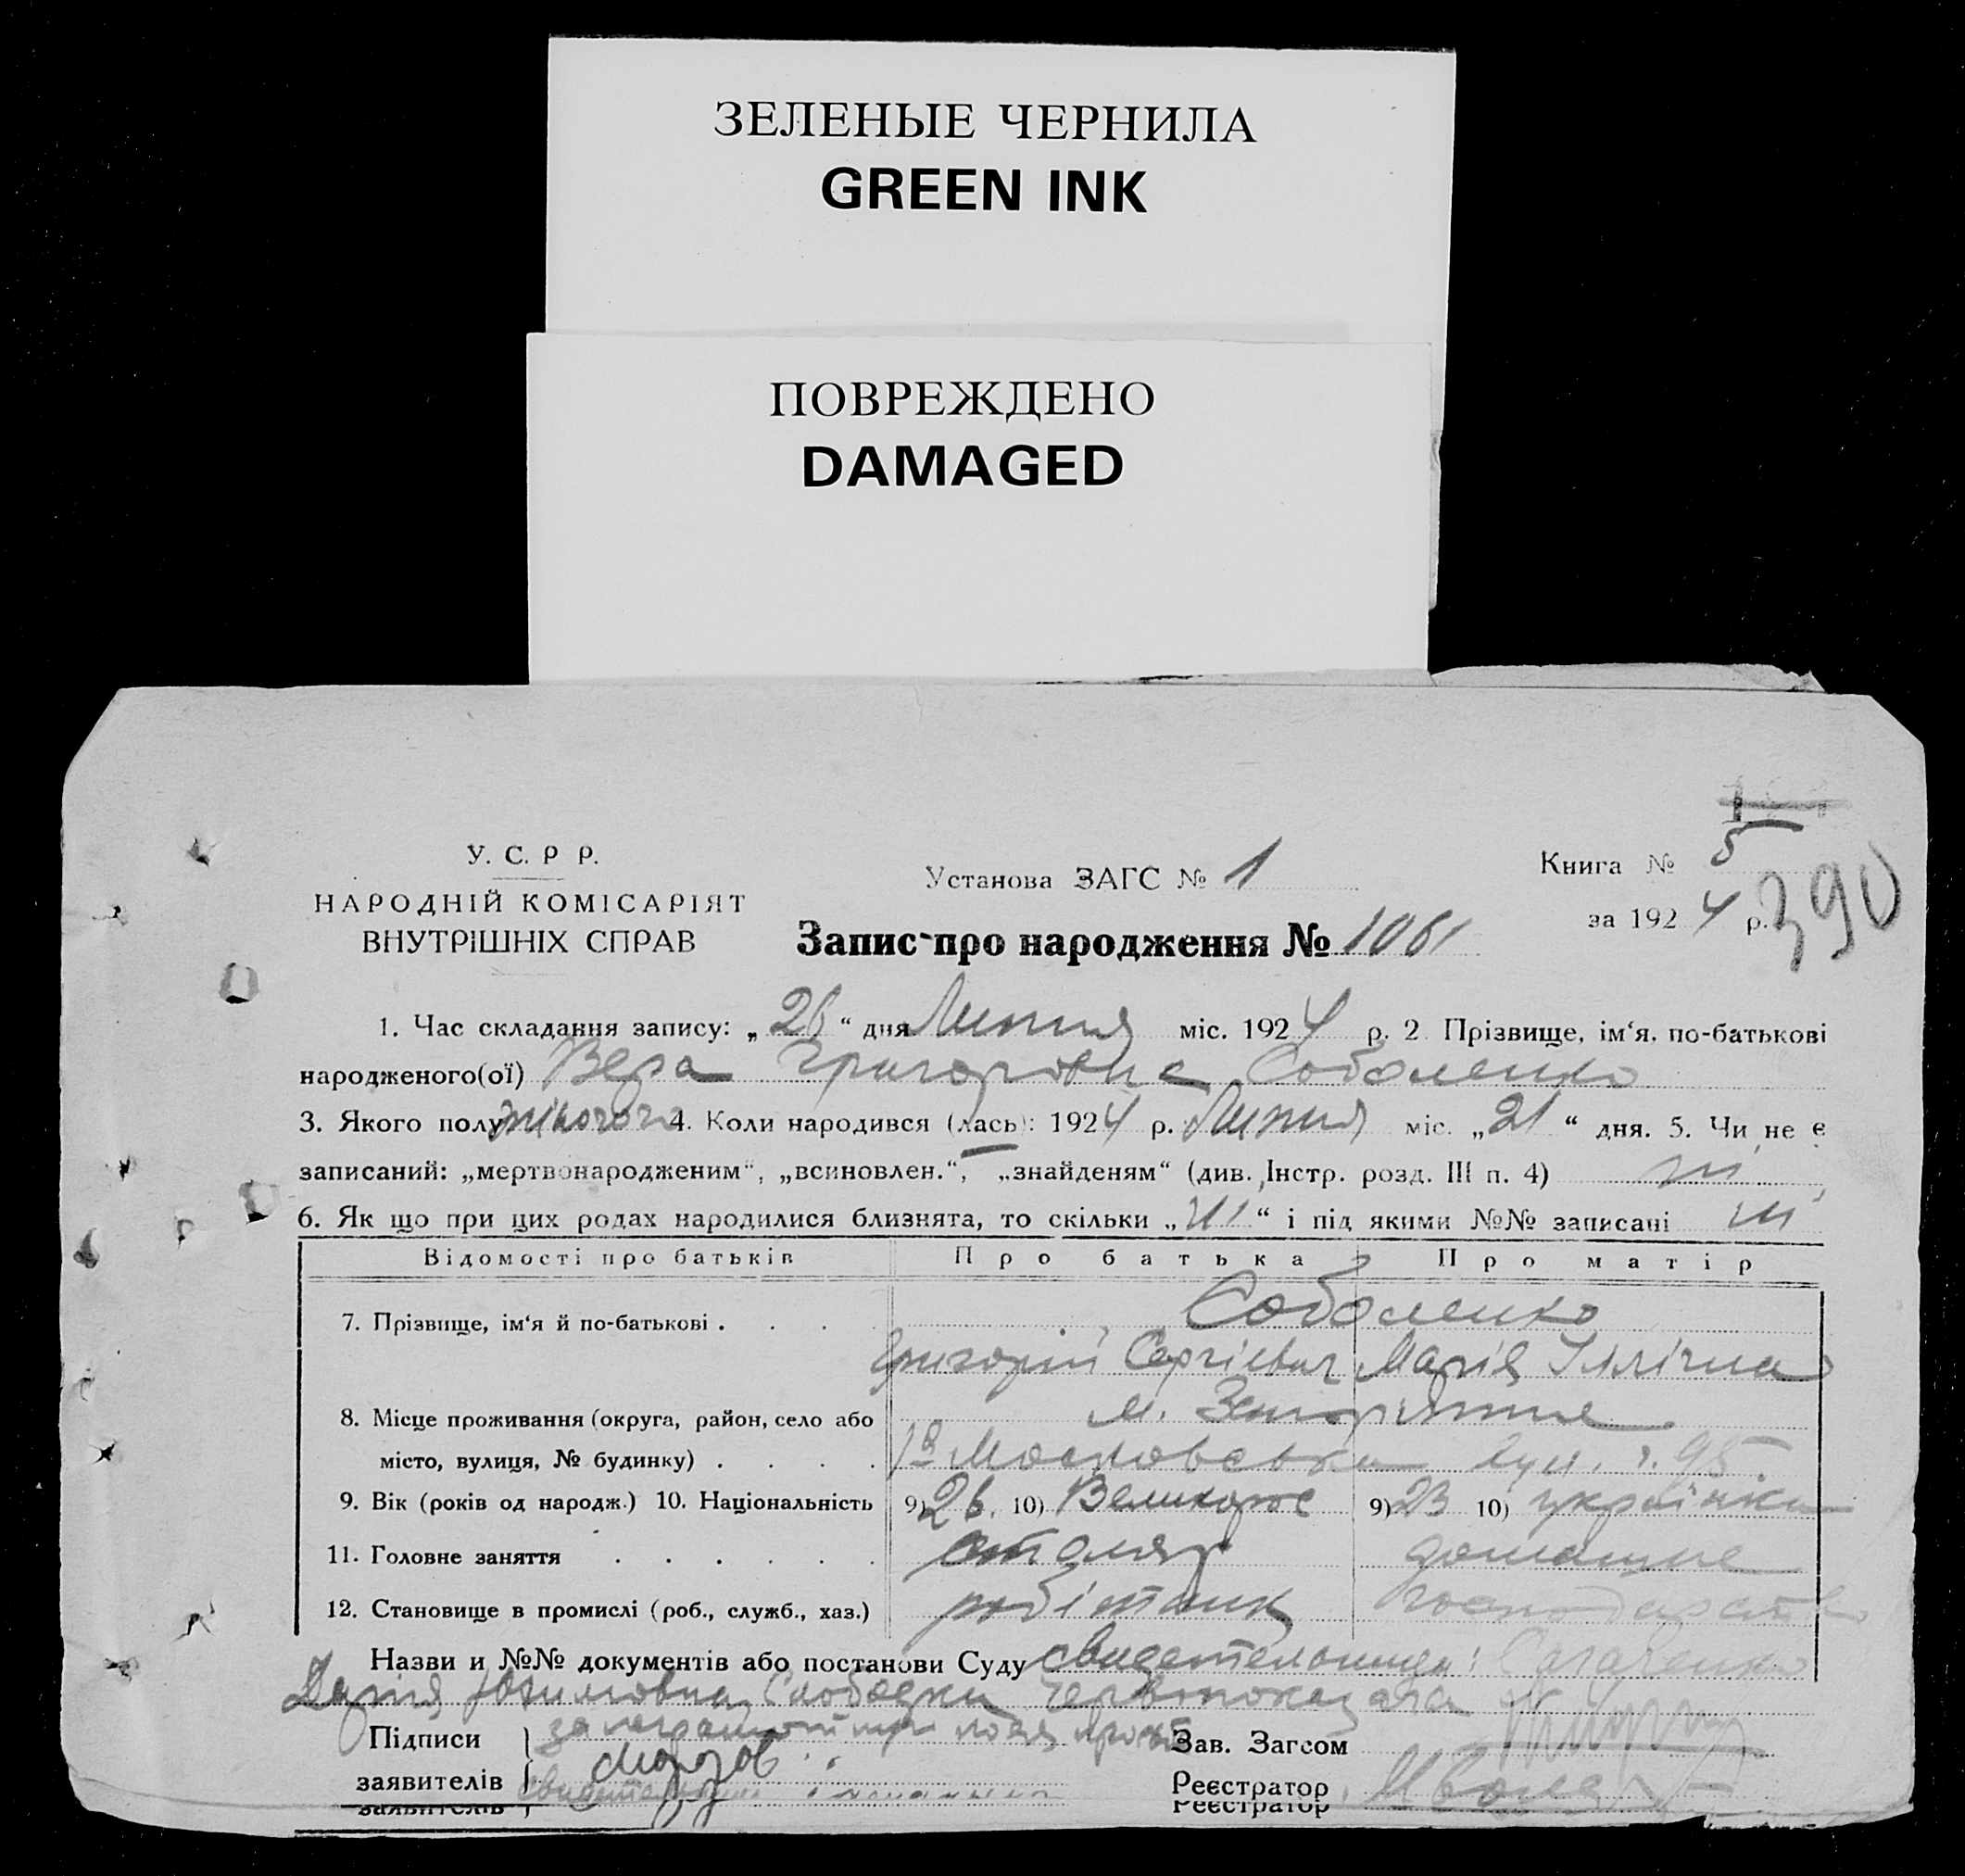 ЗЕЛЕНЫЕ ЧЕРНИЛА
GREEN INK
ПОВРЕЖДЕНО
DAMAGED
У. С. Р Р.
НАРОДНІЙ КОМІСАРІЯТ
ВНУТРІШНІХ СПРАВ
Установа ЗАГС № 1
Запис про народження № 1061
Книга № 5
за 1924 р.
390
1. Час складання запису: „26“ дня Липня міс. 1924 р. 2 Прізвище, ім‘я, по-батькові
народженого(ої) Вера Григоровна Соболенко
3. Якого полу жіночого 4. Коли народився (лась): 1924 р. Липня міс. „21“ дня. 5. Чи не є
записаний: „мертвонародженим“, „всиновлен.“, „знайденям“ (див. Інстр. розд. III п. 4) ні
6. Як що при цих родах народилися близнята, то скільки „ні“ і під якими №№ записані ні
Відомості про батьків Про батька Про матір
7. Прізвище, ім‘я й по-батькові . . . . Соболенко
Григорій Сергієвич Марія Іллічна
8. Місце проживання (округа, район, село або м. Запоріжжє
місто, вулиця, № будинку) . . . . Московська вул. 95
9. Вік (років од народж.) 10. Національність 9) 26. 10) Великорос 9) 23 10) українка
11. Головне заняття . . . . . . столяр домашнє
12. Становище в промислі (роб., служб., хаз.) робітник господарство
Назви и №№ документів або постанови Суду
Дарія
Підписи за
заявителів Морозов
Зав. Загсом
Реєстратор
заявителів
Реєстратор